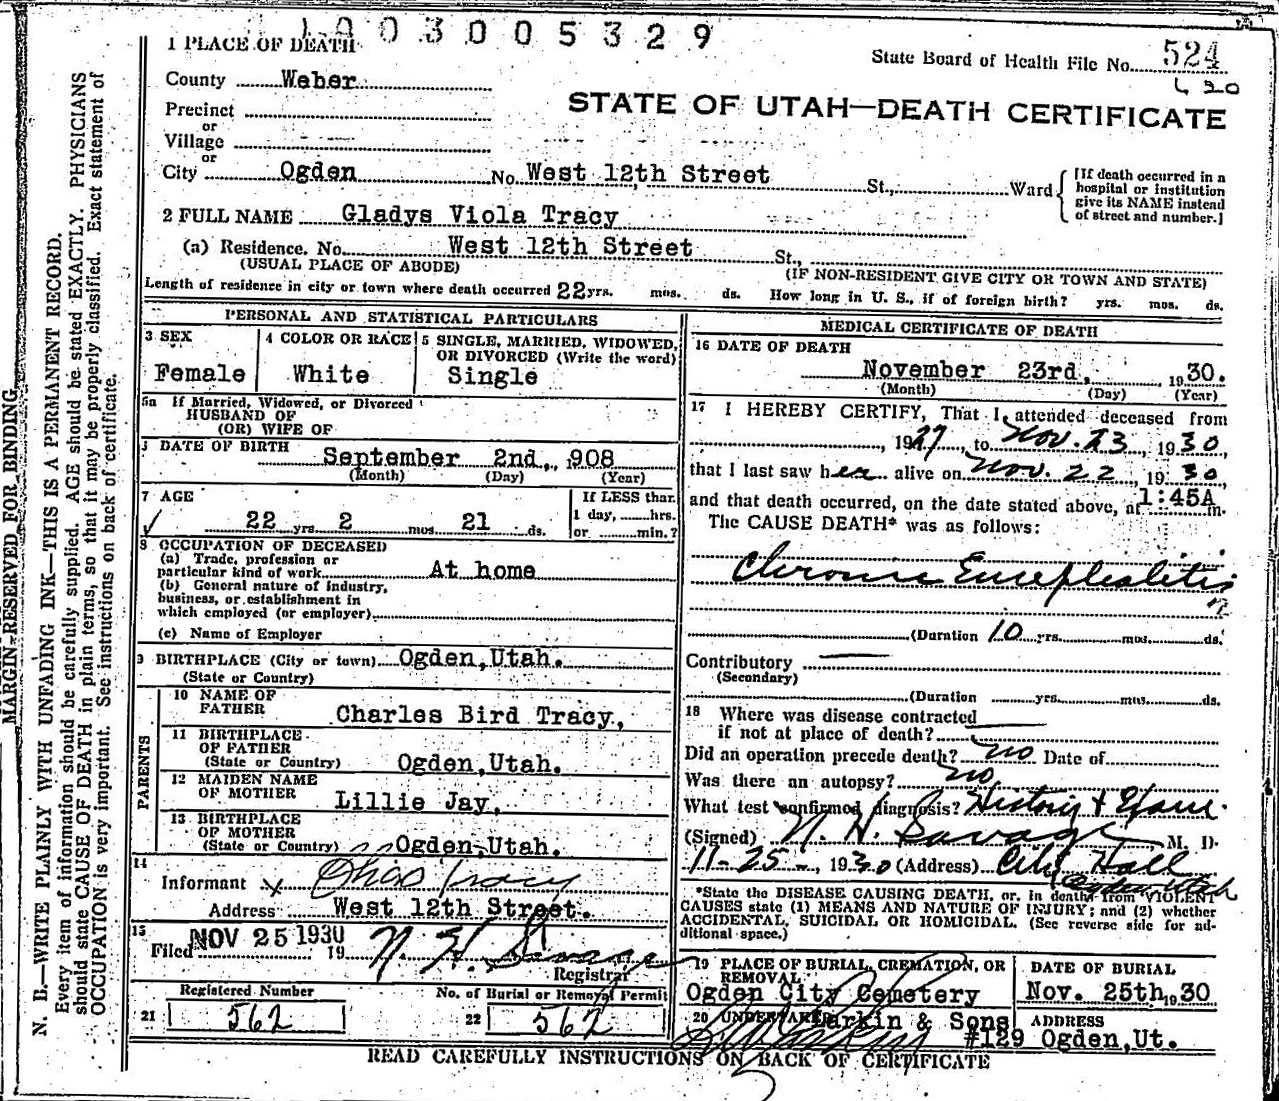 1003005329
1 PLACE OF DEATH
State Board of Health File No. 524
County Weber
STATE OF UTAH—DEATH CERTIFICATE
Precinct
or
Village
or
City Ogden No. West 12th Street St., Ward
[If death occurred in a hospital or institution give its NAME instead of street and number.]
2 FULL NAME Gladys Viola Tracy
(a) Residence. No. West 12th Street St.,
(USUAL PLACE OF ABODE) (IF NON-RESIDENT GIVE CITY OR TOWN AND STATE)
Length of residence in city or town where death occurred 22 yrs. mos. ds. How long in U. S., if of foreign birth? yrs. mos. ds.
PERSONAL AND STATISTICAL PARTICULARS
3 SEX
Female
4 COLOR OR RACE
White
5 SINGLE, MARRIED, WIDOWED,
OR DIVORCED (Write the word)
Single
5a If Married, Widowed, or Divorced
HUSBAND OF
(OR) WIFE OF
DATE OF BIRTH
September 2nd., 1908
(Month) (Day) (Year)
7 AGE
22 yrs. 2 mos. 21 ds.
If LESS than
1 day, hrs.
or min.?
8 OCCUPATION OF DECEASED
(a) Trade, profession or
particular kind of work At home
(b) General nature of industry,
business, or establishment in
which employed (or employer)
(c) Name of Employer
9 BIRTHPLACE (City or town) Ogden, Utah.
(State or Country)
PARENTS
10 NAME OF
FATHER Charles Bird Tracy,
11 BIRTHPLACE
OF FATHER
(State or Country) Ogden, Utah.
12 MAIDEN NAME
OF MOTHER Lillie Jay,
13 BIRTHPLACE
OF MOTHER
(State or Country) Ogden, Utah.
14
Informant Chas Tracy
Address West 12th Street.
15
Filed NOV 25 1930 19 N. H. Savage
Registrar
Registered Number
21 562
No. of Burial or Removal Permit
22 562
MEDICAL CERTIFICATE OF DEATH
16 DATE OF DEATH
November 23rd, 1930.
(Month) (Day) (Year)
17 I HEREBY CERTIFY, That I attended deceased from
, 1927, to Nov. 23, 1930,
that I last saw her alive on Nov. 22, 1930
and that death occurred, on the date stated above, at 1:45A m.
The CAUSE DEATH* was as follows:
Chronic Encephalitis
(Duration 10 yrs. mos. ds.
Contributory
(Secondary)
(Duration yrs. mos. ds.
18 Where was disease contracted
if not at place of death?
Did an operation precede death? no Date of
Was there an autopsy? no
What test confirmed diagnosis? History + Exam.
(Signed) N. H. Savage M. D.
11-25-, 1930 (Address) City Hall
Ogden, Utah
*State the DISEASE CAUSING DEATH, or, in deaths from VIOLENT
CAUSES state (1) MEANS AND NATURE OF INJURY; and (2) whether
ACCIDENTAL, SUICIDAL OR HOMICIDAL. (See reverse side for ad-
ditional space.)
19 PLACE OF BURIAL, CREMATION, OR
REMOVAL
Ogden City Cemetery
DATE OF BURIAL
Nov. 25th, 1930
20 UNDERTAKER Larkin & Sons
#129
ADDRESS
Ogden, Ut.
READ CAREFULLY INSTRUCTIONS ON BACK OF CERTIFICATE
MARGIN RESERVED FOR BINDING
N. B.—WRITE PLAINLY WITH UNFADING INK—THIS IS A PERMANENT RECORD.
Every item of information should be carefully supplied. AGE should be stated EXACTLY. PHYSICIANS
should state CAUSE OF DEATH in plain terms, so that it may be properly classified. Exact statement of
OCCUPATION is very important. See instructions on back of certificate.